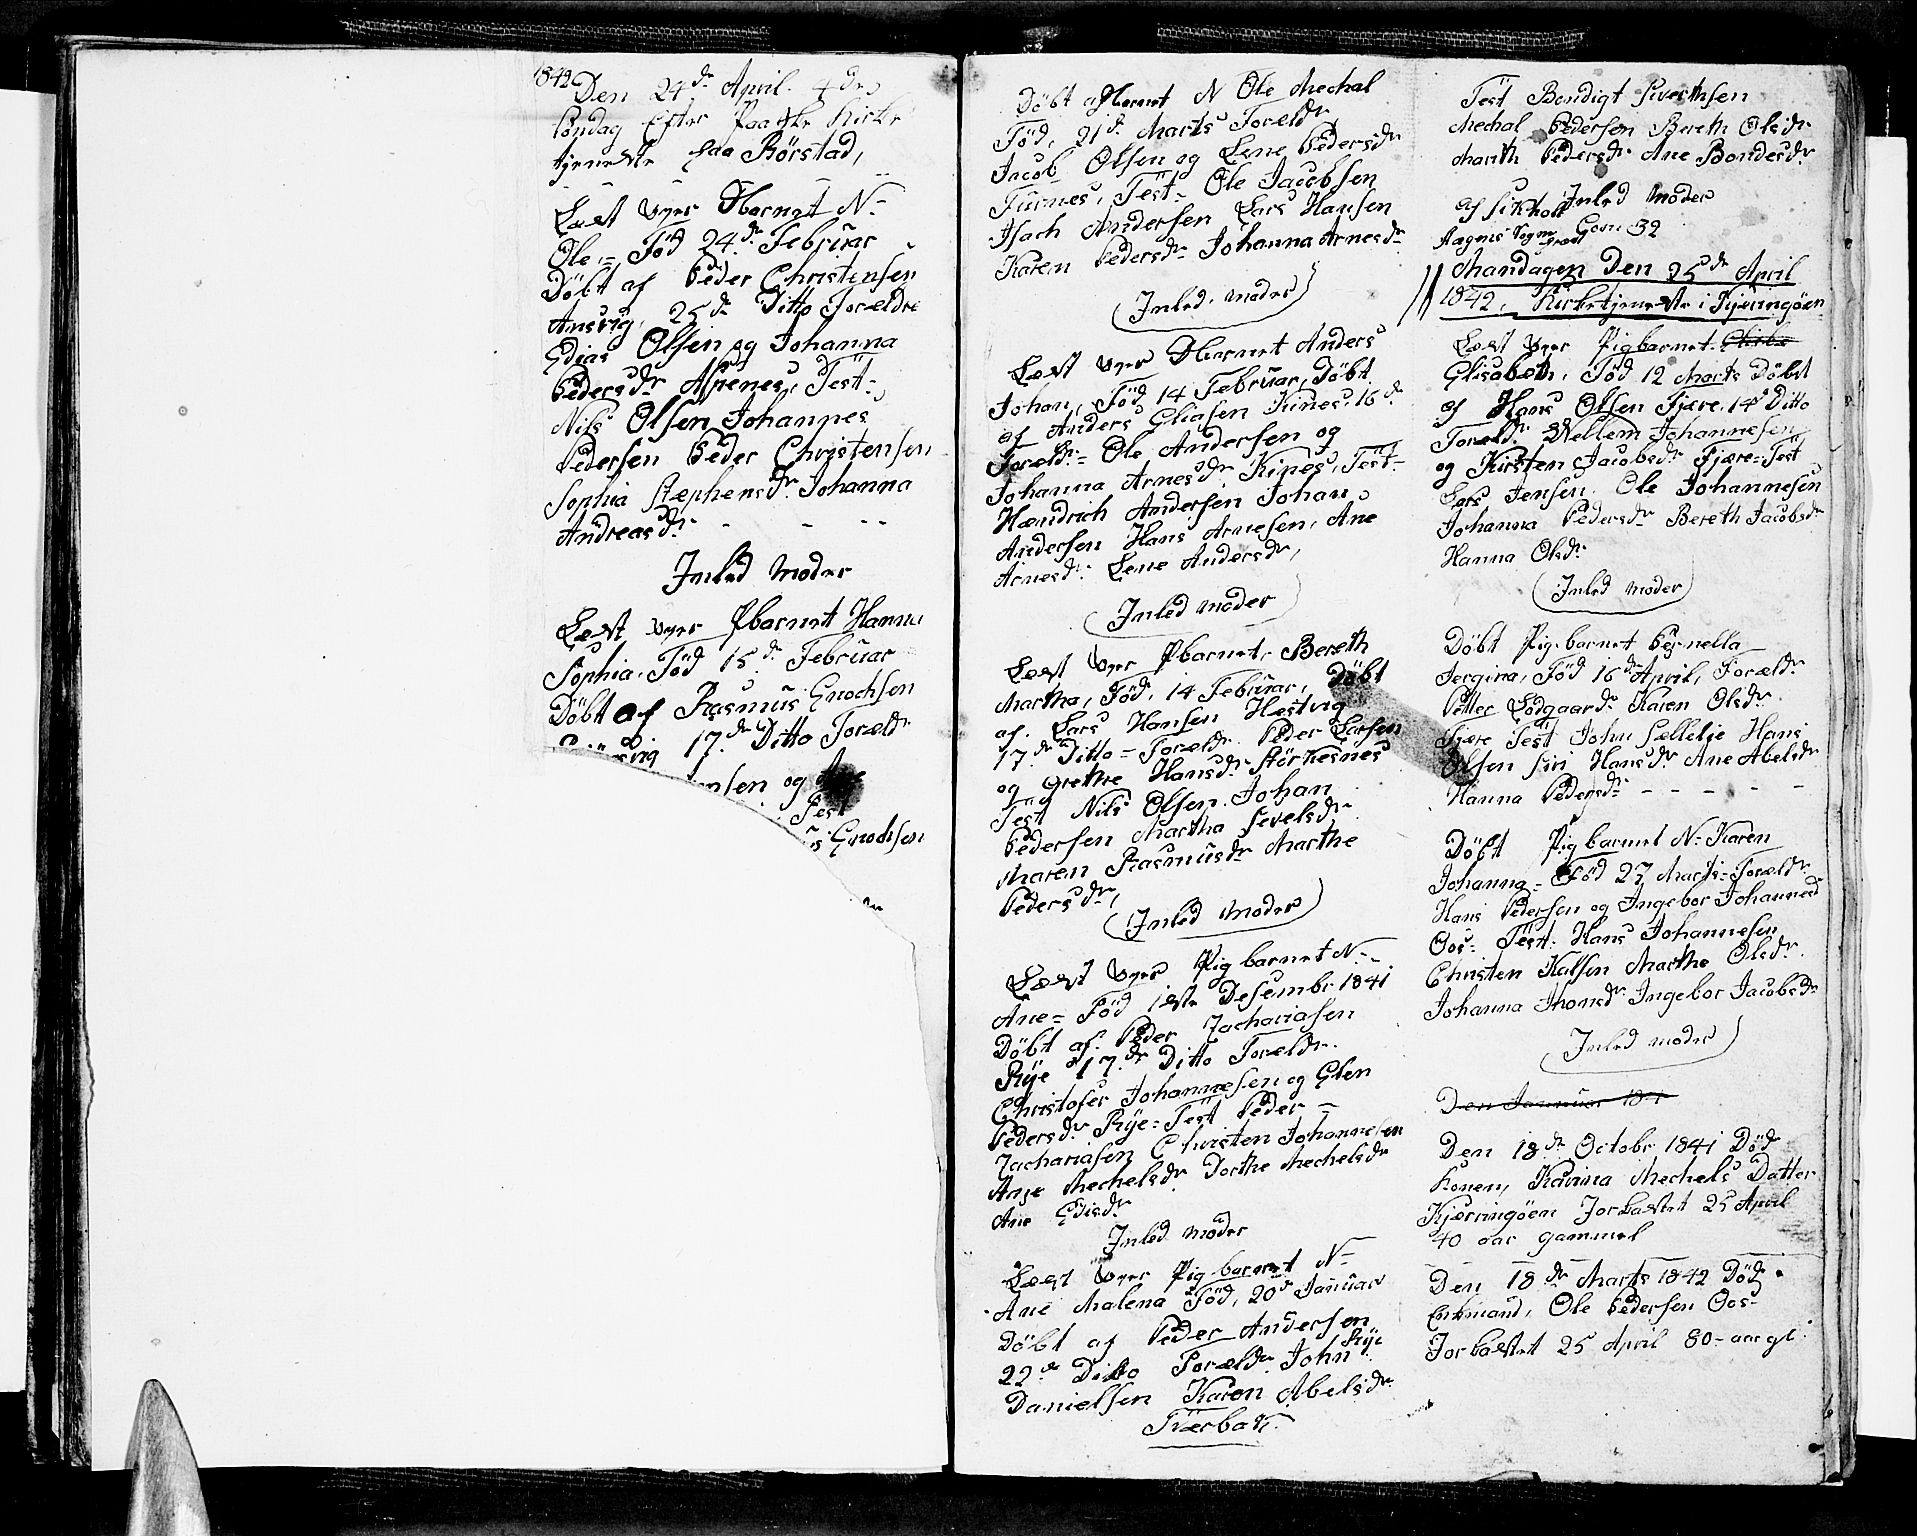 1842 Den 24de April. 4de
Søndag Efter Paaske Kirke
tjeneste paa Rörstad,
Læst over Dbarnet N-
Ole,= Föd 24de Februar
Döbt af Peder Christensen
Ansvig, 25de Ditto Forældre
Edias Olsen og Johanna
Pedersdr Aspenes, Test=
Nils Olsen Johannes
Pedersen Peder Christensen
Sophia Stephensdr. Johanna
Andreasdr - - -
Inled Moder
Læst over Pbarnet Hanna
Sophia. Föd 15de Februar
Döbt af Rasmus Enochsen
17de Ditto Forældr
og Ane
Test
Enochsen
Döbt af Hornet N Ole Mechal
Föd, 21de Marts Forældr
Jacob Olsen og Lene Pedersdr
Furnes, Test= Ole Jacobsen
Isach Andersen Lars Hansen
Karen Pedersdr Johanna Arnesdr
(Inled, Moder)
Læst over Dbarnet Anders
Johan, Föd 14 Februar, Döbt
af Anders Eliasen Kines, 16de
Forældr= Ole Andersen og
Johanna Arnesdr. Kines, Test=
Hændrich Andersen Johan
Andersen Hans Arnesen, Ane
Arnesdr. Lene Andersdr,
(Inled moder
Læst over Pbarnet, Bereth
Martha, Föd, 14 Februar, Döbt
af. Lars Hansen Hestvig
17de Ditto= Forældr Peder Larsen
og Grethe Hansdr. Störkesnes
Test Nils Olsen. Johan
Pedersen Martha Sevelsdr
Maren Rasmusdr Marthe
Pedersdr,
(Inled Moder)
Læst over Pigbarnet N-
Ane= Föd 1ste Desembr 1841
Döbt af. Peder Zachariasen
Rije 17de Ditto Forældr.
Christofer Johannesen og Elen
Pedersdr Rije= Test Peder -
Zachariasen Christen Johannesen
Ane Mechelsdr Dorthe Mechelsdr
Ane Edisdr
Inled Moder
Læst over Pigbarnet N-
Ane Malena Föd, 20de Januar
Döbt af Peder Andersen
Rije
22de Ditto Forældr John
Danielsen Karen Abelsdr.
Tverbak
Test Bendigt Siverthsen
Mechal Pedersen Bereth Olsdr
Marith Pedersdr Ane Bondesdr
Inled Moder
Mandagen Den 25de April
1842, Kirketjeneste i Kjæringöen
Læst over Pigbarnet
Elisabeth, Föd 12 Marts Döbt
af Hans Olsen Fjære. 14de Ditto
Forældr. Wellem Johannesen
og Kirsten Jacobsdr Fjære= Test
Lars Jensen. Ole Johannesen
Johanna Pedersdr Bereth Jacobsdr
Hanna Olsdr
(Inled Moder)
Döbt Pigebarnet Pernella
Jergina, Föd 16de April, Forældr
Petter Lodgaardr Karen Olsdr.
Fjære Test John Sællelje Hans
Olsen Siri Hansdr Ane Abelsdr
Hanna Pedersdr - - - - -
Döbt Pigbarnet N= Karen
Johanna= Föd 27 Marts= Forældr
Hans Pedersen og Ingebor Johannesd
Oos= Test. Hans Johannesen
Christen Kalsen Marthe Olsdr.
Johanna Thomsdr Ingebor Jacobsdr
Inled moder)
Den Januar 184
Den 18de Octobr 1841 Död
Konen, Karina Mechels Datter
Kjærringöen Jorkastet 25 April
40 aar gammel
Den 18de Marts 1842 Död
Enkmand, Ole Pedersen Oos-
Jorkastet 25 April 80- aar gl.